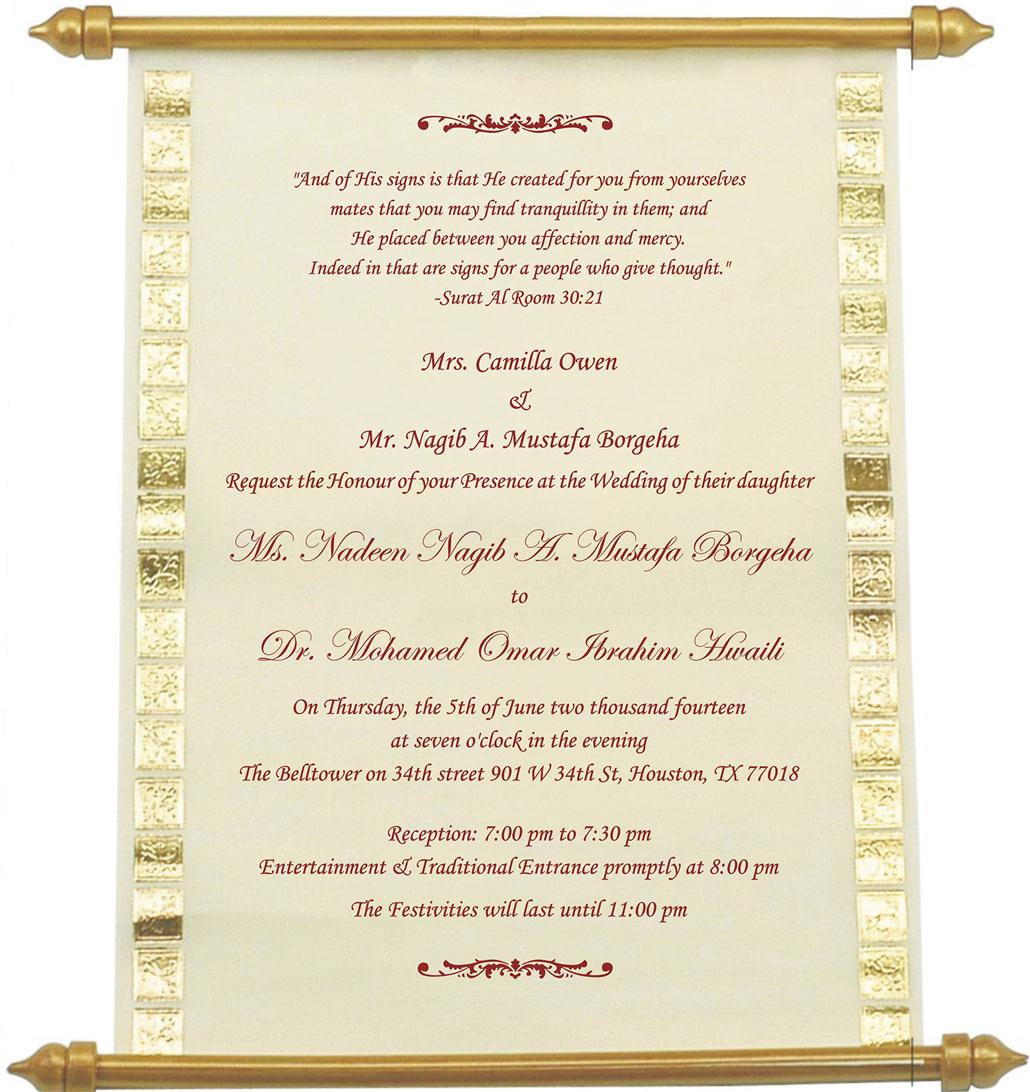 "And of His signs is that He created for you from yourselves
mates that you may find tranquillity in them; and
He placed between you affection and mercy.
Indeed in that are signs for a people who give thought."
-Surat Al Room 30:21
Mrs. Camilla Owen
&
Mr. Nagib A. Mustafa Borgeha
Request the Honour of your Presence at the Wedding of their daughter
Ms. Nadeen Nagib A. Mustafa Borgeha
to
Dr. Mohamed Omar Ibrahim Hwaili
On Thursday, the 5th of June two thousand fourteen
at seven o'clock in the evening
The Belltower on 34th street 901 W 34th St, Houston, TX 77018
Reception: 7:00 pm to 7:30 pm
Entertainment & Traditional Entrance promptly at 8:00 pm
The Festivities will last until 11:00 pm